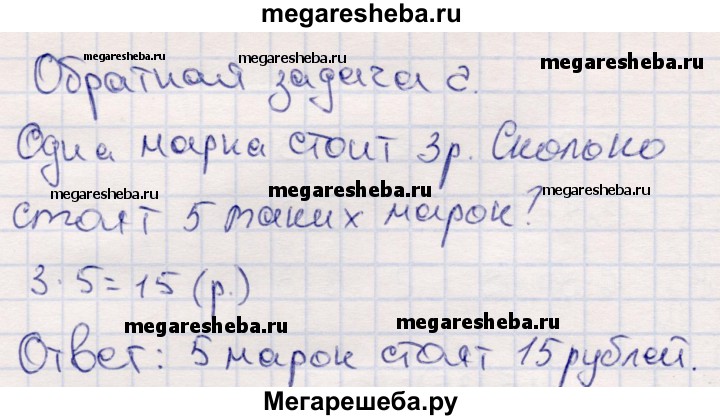 megaresheba.ru
megaresheba.ru megaresheba.ru megaresheba.ru
Обратная задача 2.
Одна марка стоит 3р. Сколько
megaresheba.ru megaresheba.ru megaresheba.ru
стоят 5 таких марок?
3·5=15 (р.)
megaresheba.ru megaresheba.ru
Ответ: 5 марок стоят 15 рублей.
Мегарешеба.ру